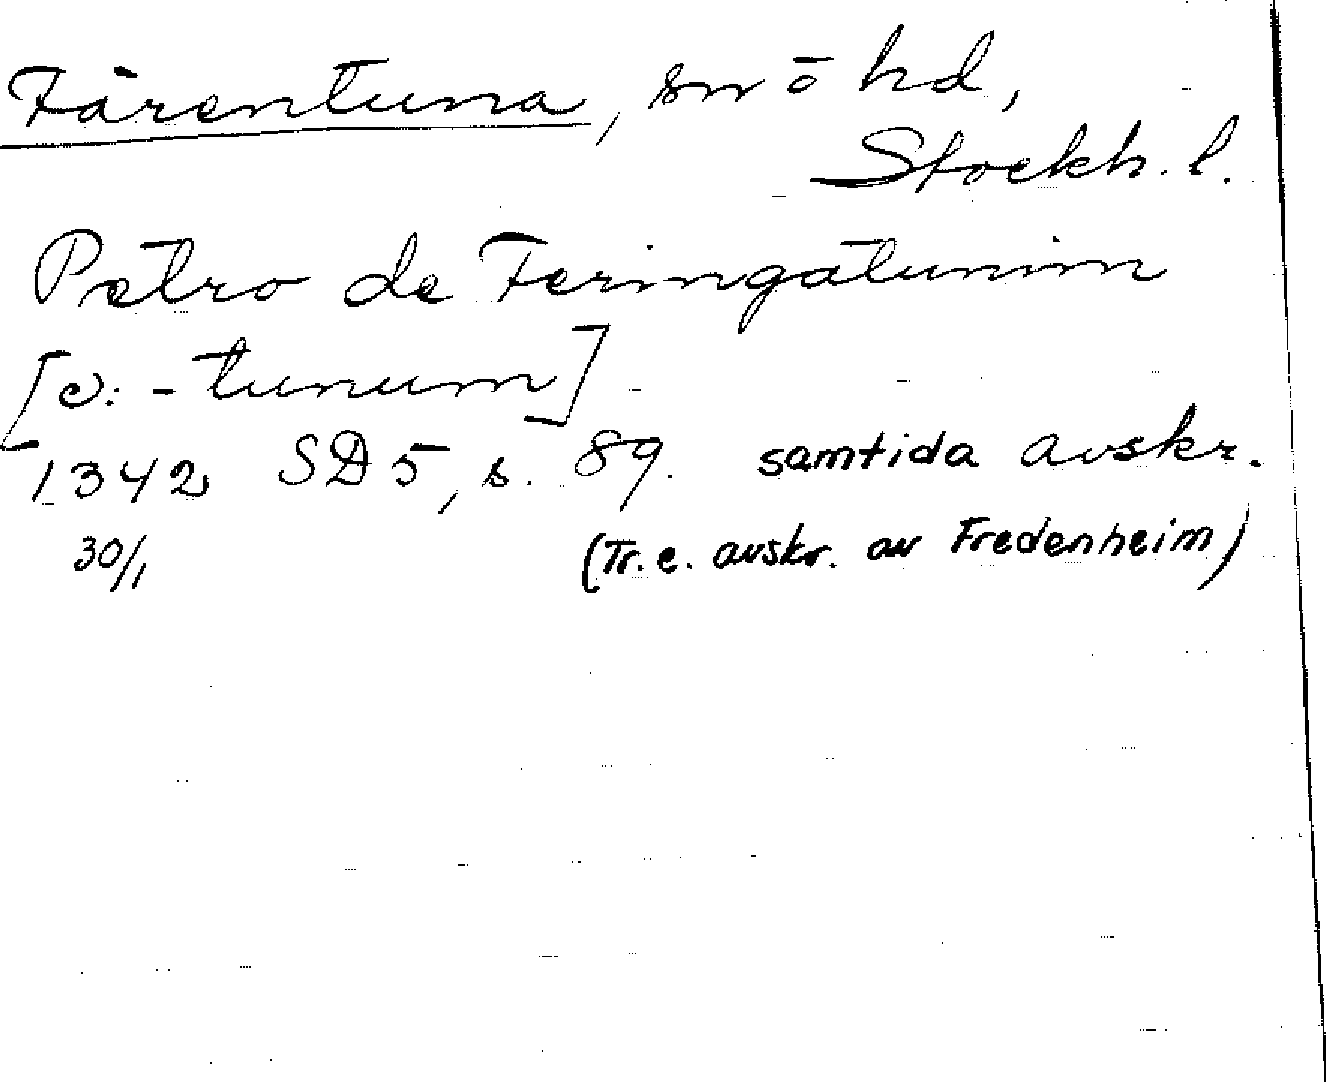 Färentuna, sn o hd,
Stockh. l.
Petro de Feringatunim
[ɔ: -tunum]
1342 SD 5, s. 89. samtida avskr.
30/1 (Tr. e. avskr. av Fredenheim)